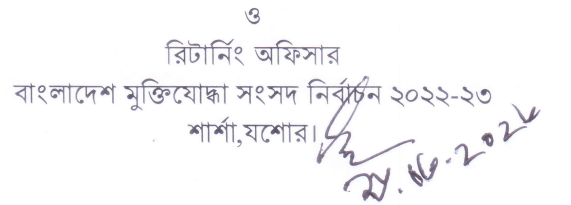 ও
রিটার্নিং অফিসার
বাংলাদেশ মুক্তিযোদ্ধা সংসদ নির্বাচন ২০২২-২৩
শার্শা,যশোর।